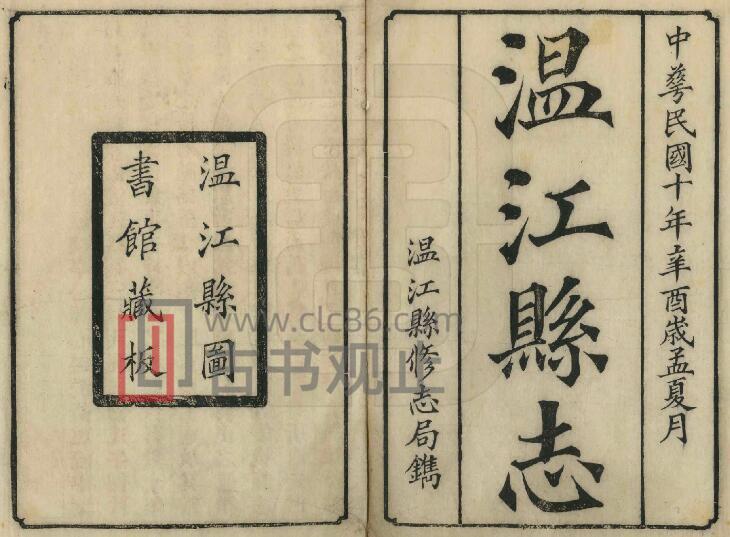 中華民國十年辛酉歲孟夏月
温江縣志
温江縣修志局鐫
温江縣圖
書館藏板
www.clc86.com
古书观止